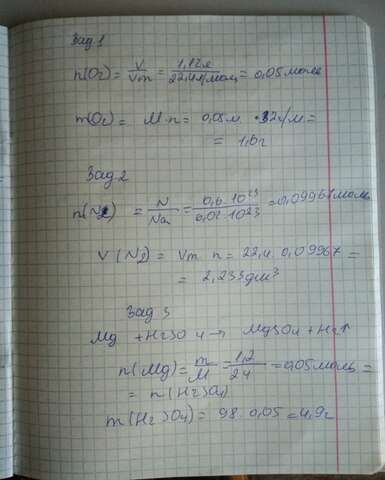 Зад.1
n(O2) = V/Vm = 1,12л/22,4л/моль = 0,05моль
m(O2) = M·n = 0,05м · 32г/м =
= 1,6г
Зад 2
n(N2) = N/Na = 0,6·10^23/6,02·10^23 = 0,09967моль
V(N2) = Vm n = 22,4 · 0,09967 =
= 2,233дм³
Зад 3
Mg + H2SO4 → MgSO4 + H2↑
n(Mg) = m/M = 1,2/24 = 0,05моль =
= n(H2SO4)
m(H2SO4) = 98·0,05 = 4,9г